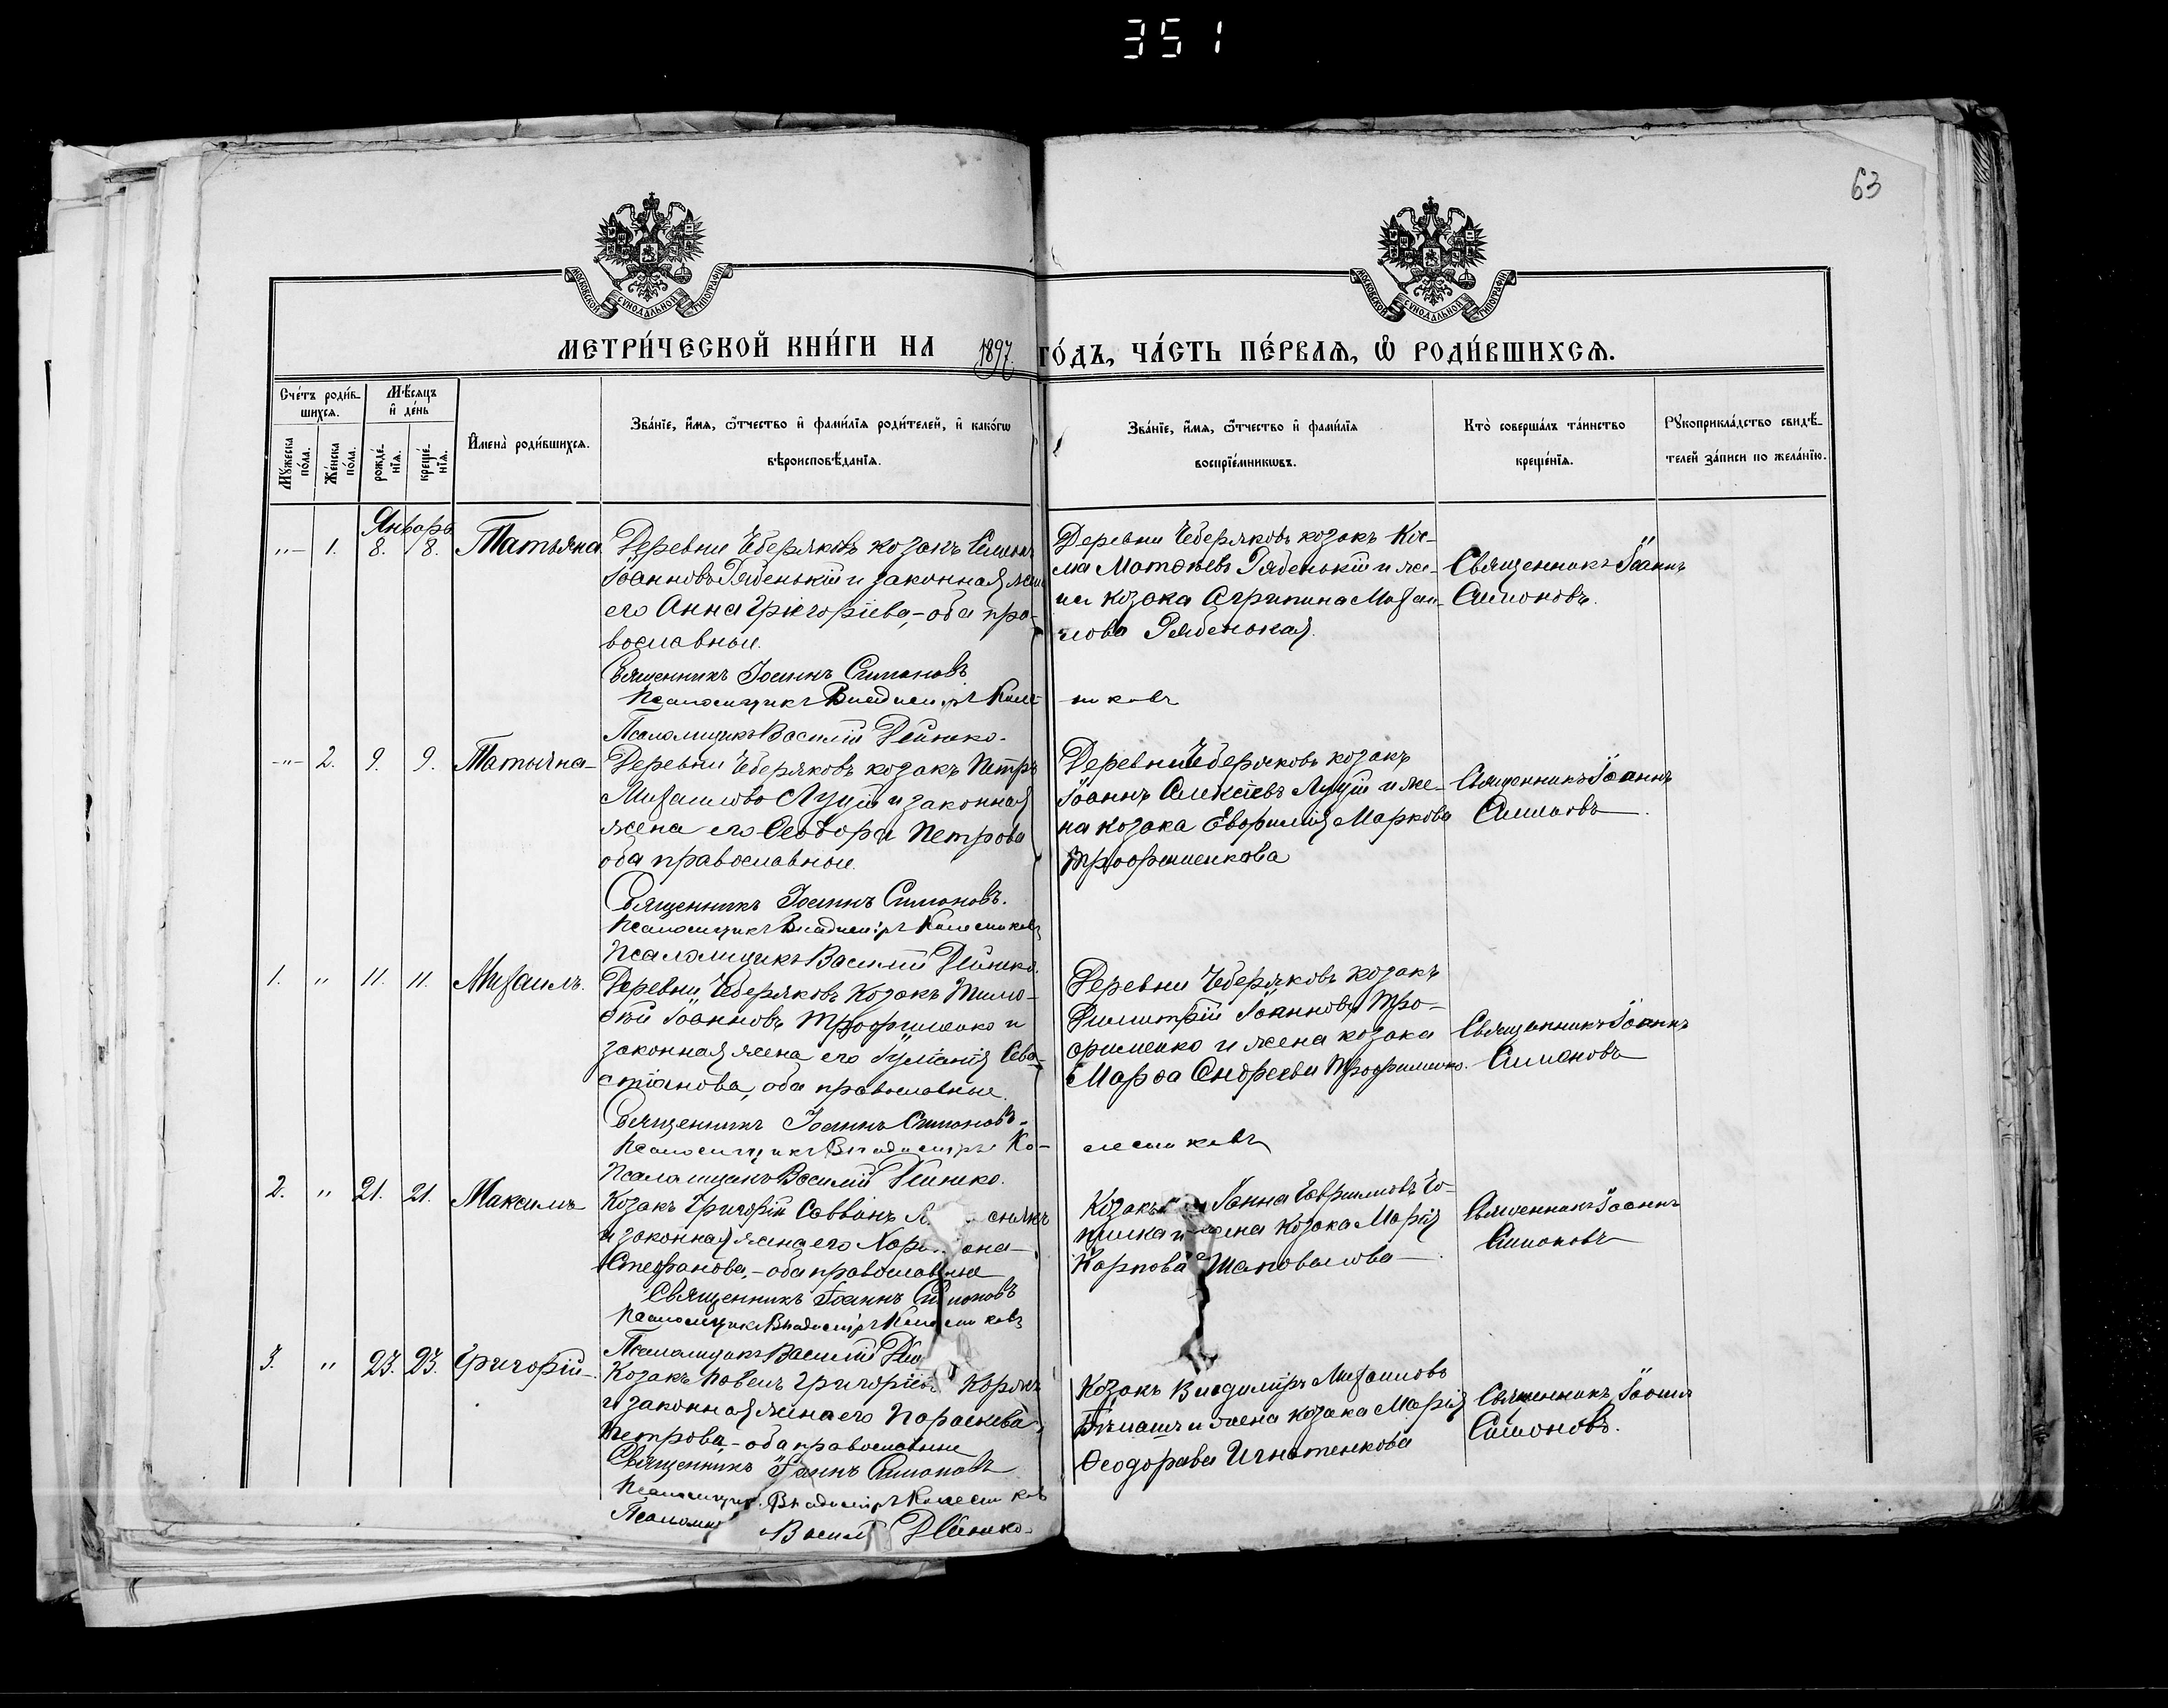 351
63
МОСКОВСКОЙ СѴНОДАЛЬНОЙ ТИПОГРАФІИ
МОСКОВСКОЙ СѴНОДАЛЬНОЙ ТИПОГРАФІИ
МЕТРИ́ЧЕСКОЙ КНИ́ГИ НА 1897 ГО́ДЪ, ЧА́СТЬ ПЕ́РВАЯ, Ѡ РОДИ́ВШИХСЯ.
Сче́тъ роди́вшихся.
Мꙋжеска по́ла.
Же́нска по́ла.
Мѣсяцъ и де́нь
рожде́нїя.
креще́нїя.
Имена̀ роди́вшихся.
Зва́нїе, и́мя, ѻ́тчество и фами́лїя роди́телей, и како́гѡ
вѣроисповѣ́данїя.
Зва́нїе, и́мя, ѻ́тчество и фами́лїя
воспрїе́мникѡвъ.
Кто̀ соверша́лъ та́инство
креще́нїя.
Рꙋкоприкла́дство свидѣ́-
телей за́писи по жела́нїю.
Январь
"— 1. 8. 8. Татьяна
Деревни Чеберяковъ козакъ Семенъ
Іоанновъ Рябенькій и законная жена
его Анна Григоріева,- оба пра-
вославные.
Священникъ Іоаннъ Симоновъ
Псаломщикъ Владиміръ Колесниковъ
Псаломщикъ Василій Дейнеко.
Деревни Чеберяковъ козакъ Кос-
ма Матѳѣевъ Рябенькій и же-
на козака Агрипина Михаи-
лова Рябенькая.
Священникъ Іоаннъ
Симоновъ.
-"- 2. 9. 9. Татьяна-
Деревни Чеберяковъ козакъ Петръ
Михаиловъ Луцій и законная
жена его Ѳеодора Петрова
оба православные.
Священникъ Іоаннъ Симоновъ.
Псаломщикъ Владиміръ Колесниковъ
Псаломщикъ Василій Дейнеко.
Деревни Чеберяковъ козакъ
Іоаннъ Алексѣевъ Луцій и же-
на козака Евфимія Маркова
Трофименкова
Священникъ Іоаннъ
Симоновъ
1. " 11. 11. Михаилъ.
Деревни Чеберяковъ Козакъ Тимо-
ѳѣй Іоанновъ Трофименко и
законная жена его Іуліанія Сева-
стіанова, оба православные.
Священникъ Іоаннъ Симоновъ.
Псаломщикъ Владиміръ Колесниковъ
Псаломщикъ Василій Дейнеко.
Деревни Чеберяковъ козакъ
Димитрій Іоанновъ Тро-
фименко и жена козака
Марѳа Андреева Трофименко.
Священникъ Іоаннъ
Симоновъ
2. " 21. 21. Максимъ
Козакъ Григорій Саввинъ
и законная жена его
Стефанова,- оба православные
Священникъ Іоаннъ Симоновъ
Псаломщикъ Владиміръ Колесниковъ
Псаломщикъ Василій
Козакъ Іоанна Гавриловъ
и жена козака Марія
Карпова Шаповалова
Священникъ Іоаннъ
Симоновъ
3. " 23. 23. Григорій-
Козакъ Павелъ Григоріевъ
и законная жена его Параскева
Петрова,- оба православные
Священникъ Іоаннъ Симоновъ
Псаломщикъ Владиміръ Колесниковъ
Василій Дейнеко.
Козакъ Владиміръ Михаиловъ
и жена козака Марія
Ѳеодорова Игнатенкова
Священникъ Іоаннъ
Симоновъ.